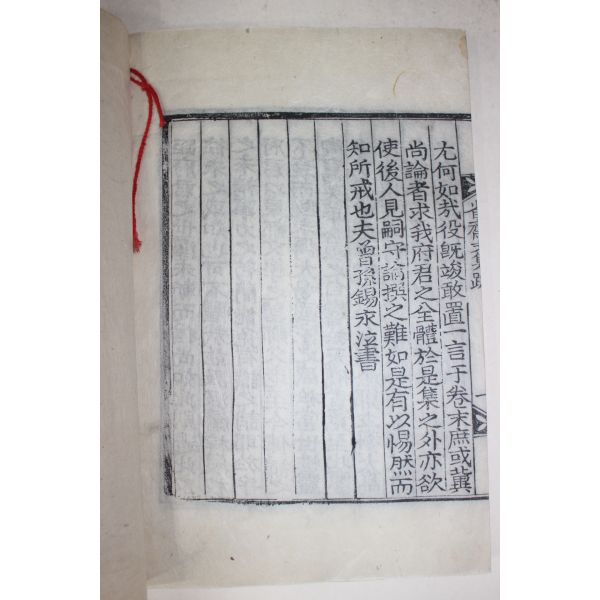 尤何如哉役旣竣敢置一言于卷末庶或冀
尙論者求我府君之全體於是集之外亦欲
使後人見嗣守論撰之難如是有以惕然而
知所戒也夫曾孫錫永泣書